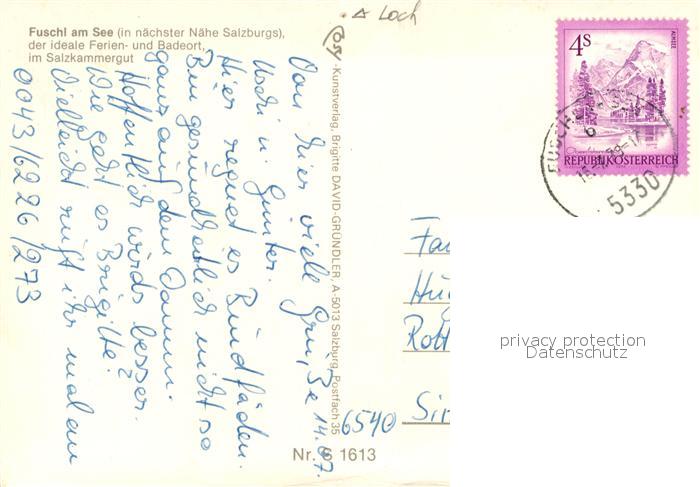 Loch
Fuschl am See (in nächster Nähe Salzburgs),
der ideale Ferien- und Badeort,
im Salzkammergut
14.07.
Von hier viele Grüße
Uschi u. Günter.
Hier regnet es Bindfäden.
Bin gesundheitlich nicht so
ganz auf dem Damm.
Hoffentlich wirds besser.
Wie geht es Brigitte?
Vielleicht ruft ihr mal an
0043/6226/273
Kunstverlag, Brigitte DAVID-GRÜNDLER, A-5013 Salzburg, Postfach 35
Nr. S 1613
4S
ALMSEE
REPUBLIK ÖSTERREICH
FUSCHL
5330
Fa
Hü
Rott
6540 Sim
privacy protection
Datenschutz